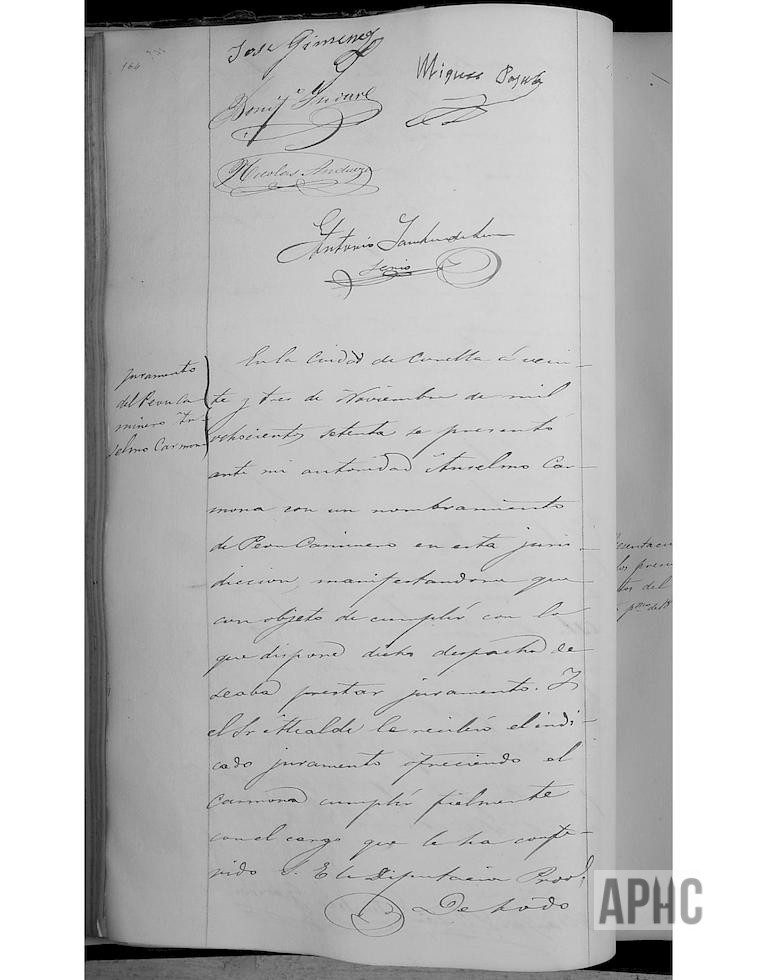 164
Jose Gimenez
Miguel
Nicolas Andueza
Antonio
Juramento
del Peon Ca-
minero An-
selmo Carmona
En la Ciudad de Corella á vein-
te y tres de Noviembre de mil
ochocientos setenta se presentó
ante mi autoridad Anselmo Car-
mona con un nombramiento
de Peon Caminero en esta juris-
diccion, manifestandome que
con objeto de cumplir con lo
que dispone dicho despacho de
seaba prestar juramento. Y
el Sr Alcalde le recibió el indi-
cado juramento ofreciendo el
Carmona cumplir fielmente
con el cargo que le ha confe-
rido S. E. la Diputacion Provl.
De todo
los presu
tos del
APHC